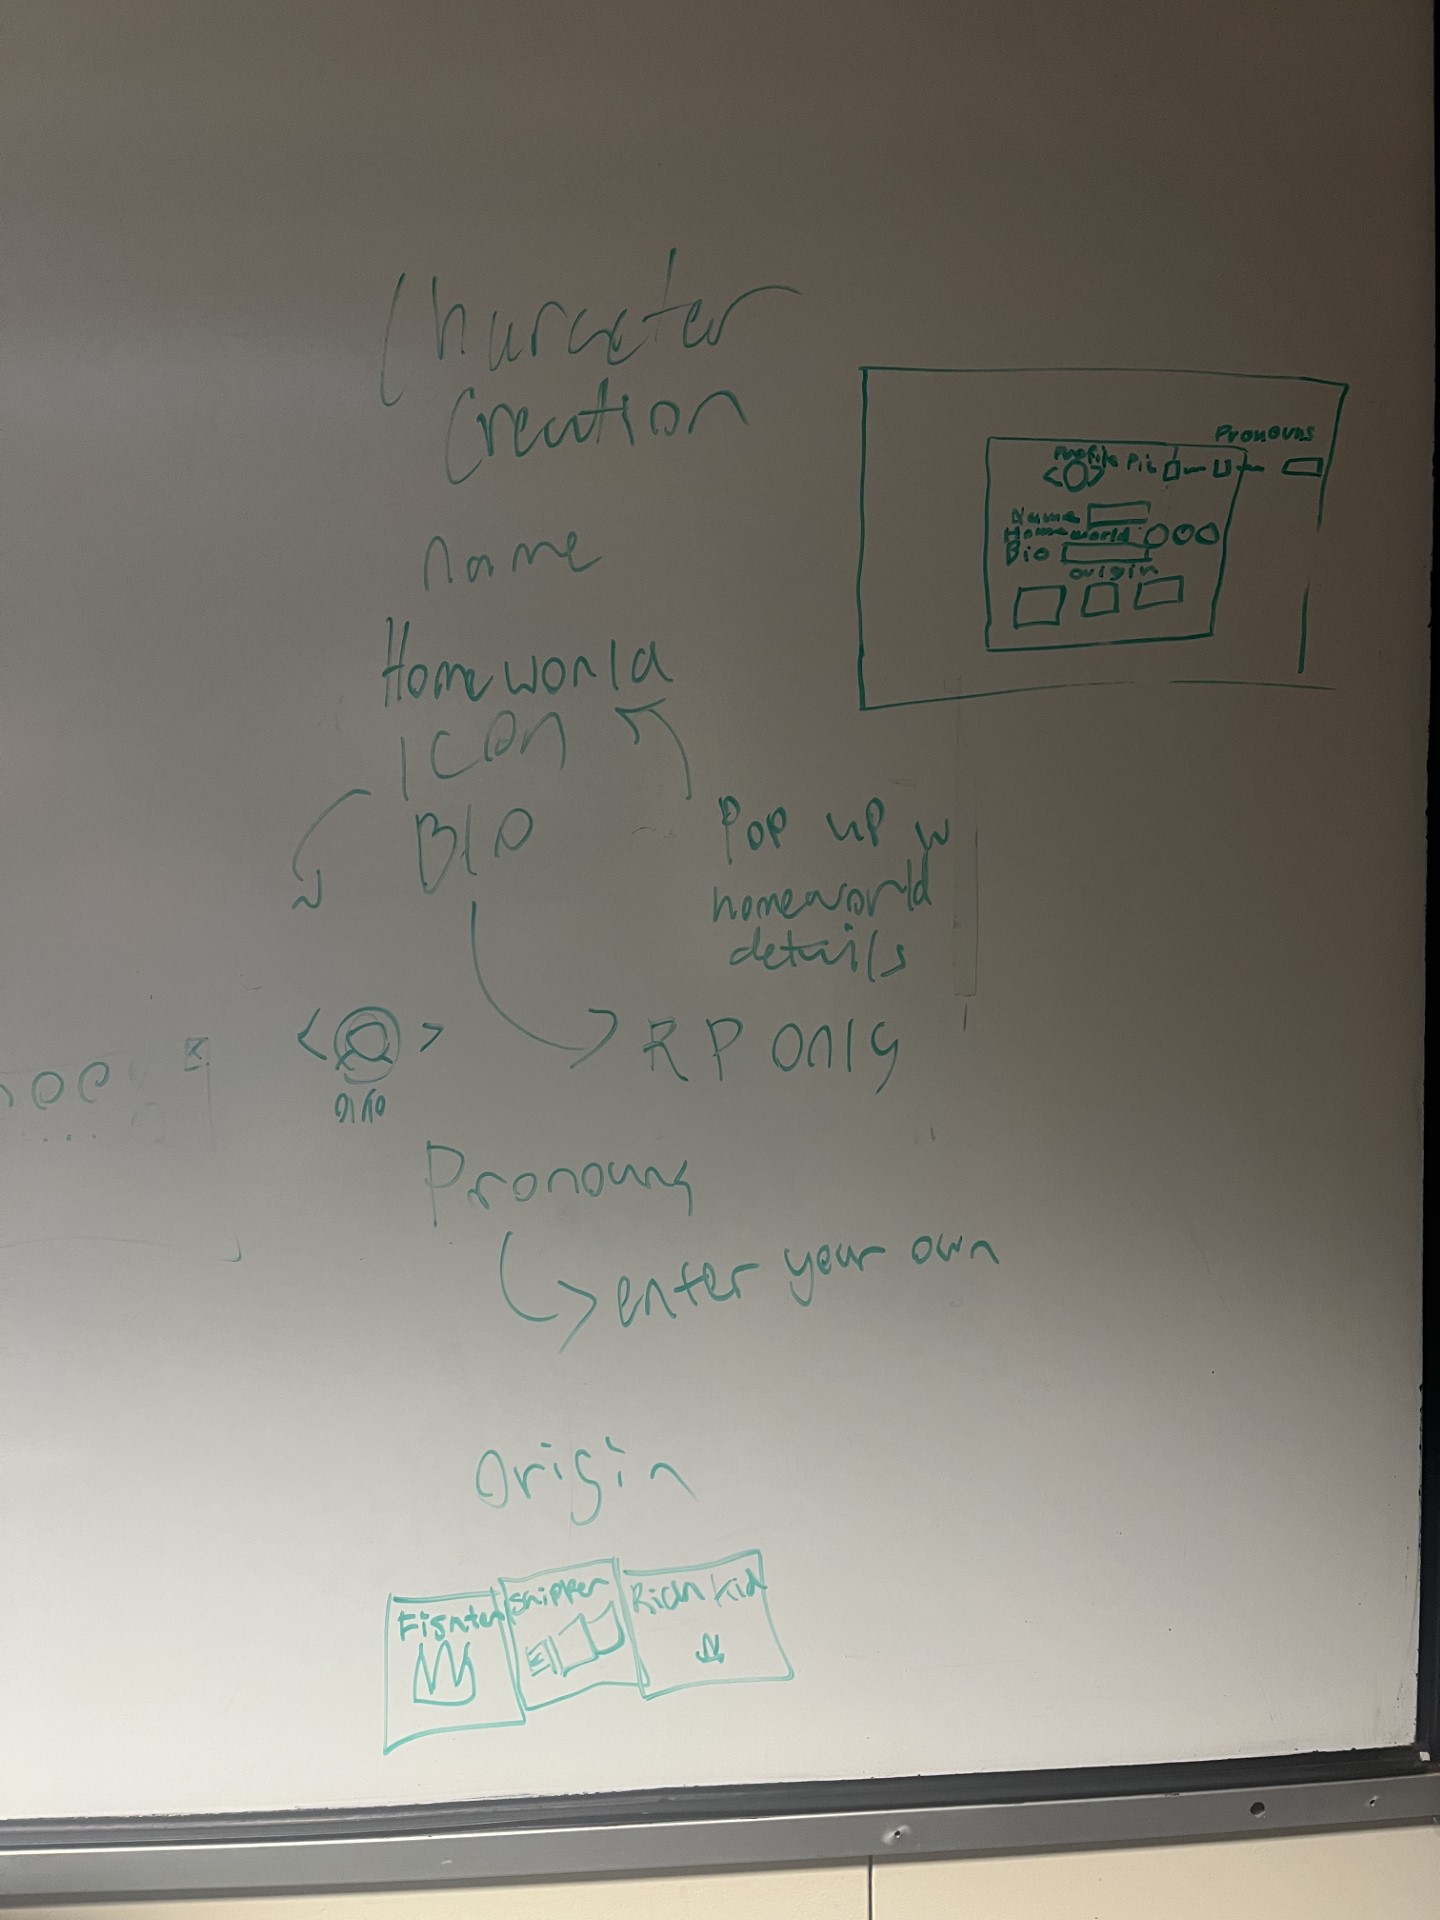 Character
Creation
name
Homeworld
ICON
BIO
Pop up w
homeworld
details
RP only
Pronouns
enter your own
Origin
Fighter
Shipper
Rich Kid
Pronouns
Profile Pic
Name
Homeworld
Bio
origin